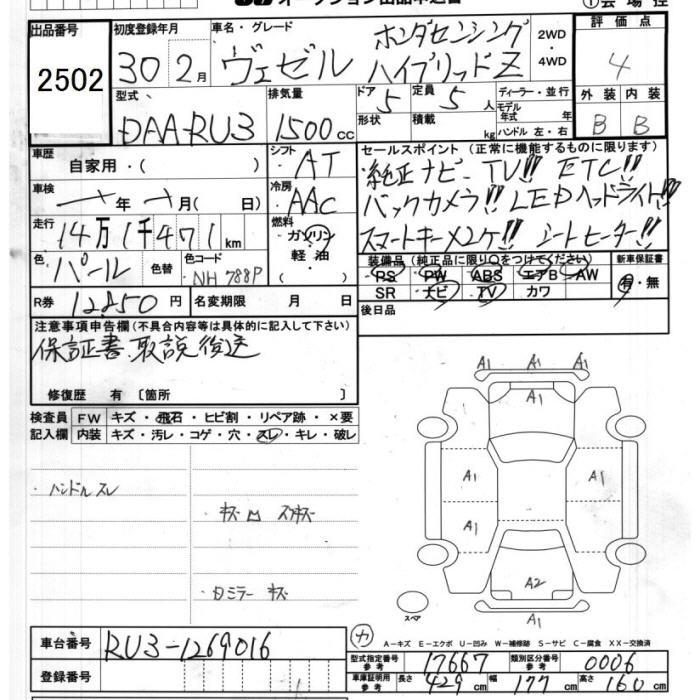 オークション出品申込書
①会場控
出品番号
2502
初度登録年月
30年2月
車名・グレード
ヴェゼル
ホンダセンシング
ハイブリッドZ
2WD
・
4WD
評価点
4
外装 内装
B B
型式
DAA-RU3
排気量
1500cc
ドア 5
定員 5人
形状
積載 kg
ディーラー・並行
モデル年式 年式
ハンドル 左・右
車歴
自家用・( )
シフト
AT
車検
年 月( 日)
冷房
AAC
走行
14万1千471km
燃料
ガソリン
軽油
・( )
色
パール
色替
色コード
NH788P
R券
12850円
名変期限 月 日
セールスポイント(正常に機能するものに限ります)
純正ナビ TV!! ETC!!
バックカメラ!! LEDヘッドライト!!
スマートキー×2ケ!! シートヒーター!!
装備品(純正品に限り○をつけてください)
PS PW ABS エアB AW
SR ナビ TV カワ
新車保証書
有・無
後日品
注意事項申告欄(不具合内容等は具体的に記入して下さい)
保証書、取説後送
修復歴 有 〔箇所 〕
検査員記入欄
FW キズ・飛石・ヒビ割・リペア跡・×要
内装 キズ・汚レ・コゲ・穴・スレ・キレ・破レ
・ハンドルスレ
・キズ
・スリキズ
・Dミラー キズ
A1 A1 A1
A1
A1 A1
A1
A2
A1
スペア
車台番号
RU3-1269016
登録番号
カ
A-キズ E-エクボ U-凹み W-補修跡 S-サビ C-腐食 XX-交換済
型式指定番号 参考 17667
類別区分番号 参考 0006
車庫証明用 参考 長さ 429cm 幅 177cm 高さ 160cm